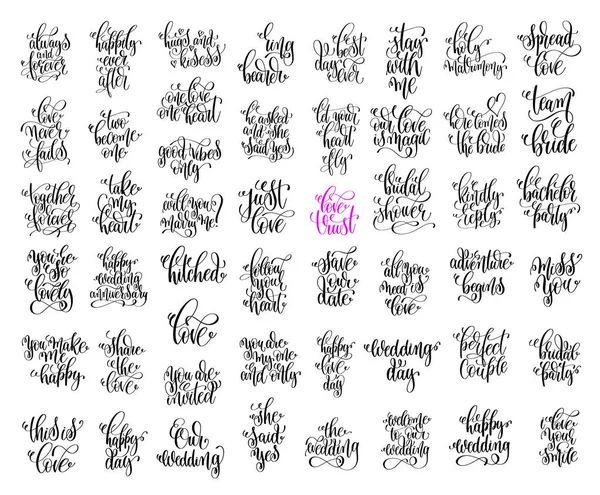 always
and
forever
happily
ever
after
hugs and
kissess
ring
bearer
best
day
ever
stay
with
me
holy
matrimony
spread
love
love
never
fails
two
become
one
one love
one heart
good vibes
only
he asked
and she
said yes
let your
heart
fly
our love
is magic
here comes
the bride
team
bride
together
forever
take
my
heart
will you
marry me?
just
love
love
trust
bridal
shower
kindly
reply
bachelor
party
you're
so
lovely
happy
wedding
anniversary
hitched
love
follow
your
heart
save
our
date
all you
need is
love
adventure
begins
miss
you
you make
me
happy
share
the
love
you are
invited
you are
my one
and only
happy
love
day
wedding
day
perfect
couple
bridal
party
this is
love
happy
day
our
wedding
she
said
yes
the
wedding
welcome
to our
wedding
happy
wedding
i love
your
smile